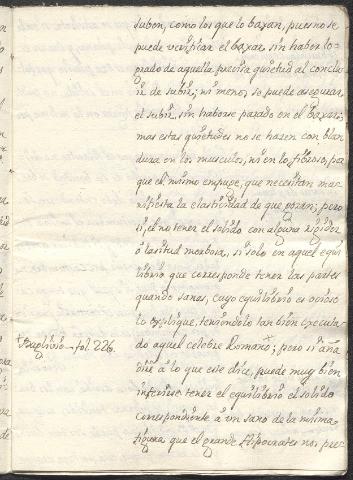 subon, como los que lo baxan, pues no se
puede verificar el baxar sin haber lo-
grado de aquella precisa quietud al conclu-
ir de subir; ni menos se puede asegurar
el subir, sin haberse parado en el baxar;
mas estas quietudes no se hazen con blan
dura en los musculos, ni en lo fibroso, pa
que el mismo empuge, que necesitan ma-
nifiesta la elasticidad de que gozan; pero
si, el no tener el solido con alguna rigidez
ó laxitud morbosa, si solo en aquel equi
librio que corresponde tener las partes
quando sanas, cuyo equilibrio es ocioso
lo explique, teniendolo tan bien executa-
do aquel celebre Romano; pero si aña
dire á lo que este dice, puede muy bien
inferirse tener el equilibrio el solido
correspondiente á un sano de la misma
figura que el grande Hipocrates nos pre-
fol. 226.